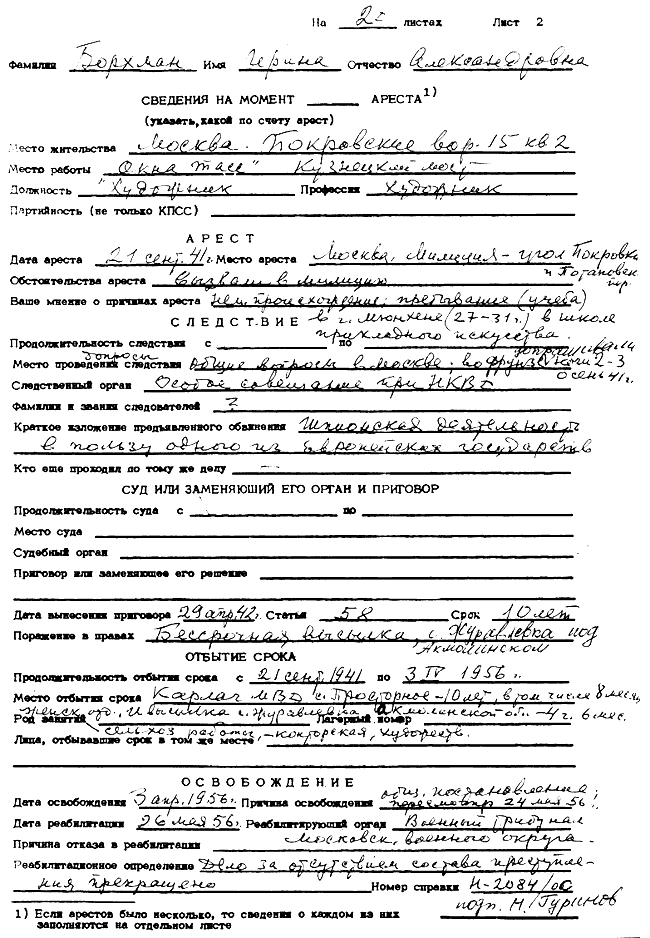 На 2х листах Лист 2
Фамилия Борхман Имя Герина Отчество Александровна
СВЕДЕНИЯ НА МОМЕНТ ______ АРЕСТА1)
(указать,какой по счету арест)
Место жительства Москва. Покровские вор. 15 кв 2
Место работы "Окна Тасс" Кузнецкий мост
Должность "Художник Профессия Художник
Партийность (не только КПСС)
АРЕСТ
Дата ареста 21 сент. 41г. Место ареста Москва, Милиция - угол Покровки
и Потаповск. пер.
Обстоятельства ареста Вызвали в милицию
Ваше мнение о причинах ареста Нем. происхождение; пребывание (учеба)
СЛЕДСТВИЕ в г. Мюнхене (27-31г.) в школе
прикладного искусства.
Продолжительность следствия с по
допросы допрашивали
Место проведения следствия общие вопросы в Москве; во Фрунзе ночи 2-3
осень 41г.
Следственный орган Особое совещание при НКВД
Фамилии и звания следователей ?
Краткое изложение предъявленного обвинения Шпионская деятельность
в пользу одного из Европейских государств
Кто еще проходил по тому же делу —
СУД ИЛИ ЗАМЕНЯЮШИЙ ЕГО ОРГАН И ПРИГОВОР
Продолжительность суда с по
Место суда
Судебный орган
Приговор или заменяющее его решение
Дата вынесения приговора 29 апр 42г. Статья 58 Срок 10 лет
Поражение в правах Бессрочная высылка, с. Журавлевка под
Акмолинском
ОТБЫТИЕ СРОКА
Продолжительность отбытия срока с 21 сент 1941 по 3 IV 1956г.
Место отбытия срока Карлаг МВД с. Просторное - 10 лет, в том числе 8 месяц.
Род занятий и высылка с. Журавлевка Акмолинской обл. - 4 г. 6 мес.
Лагерный номер
сельхоз работы, - конторская, художеств.
Лица, отбывавшие срок в том же месте
ОСВОБОЖДЕНИЕ
общ. постановление;
Дата освобождения 3 апр. 1956г. Причина освобождения пересмотр 24 мая 56г.
Дата реабилитации 26 мая 56г. Реабилитирующий орган Военный Трибунал
Причина отказа в реабилитации Московск. военного округа.
Реабилитационное определение Дело за отсутствием состава преступле-
ния прекращено Номер справки Н-2084/ос
подп. Н. Гуринов
1) Если арестов было несколько, то сведения о каждом из них
заполняются на отдельном листе